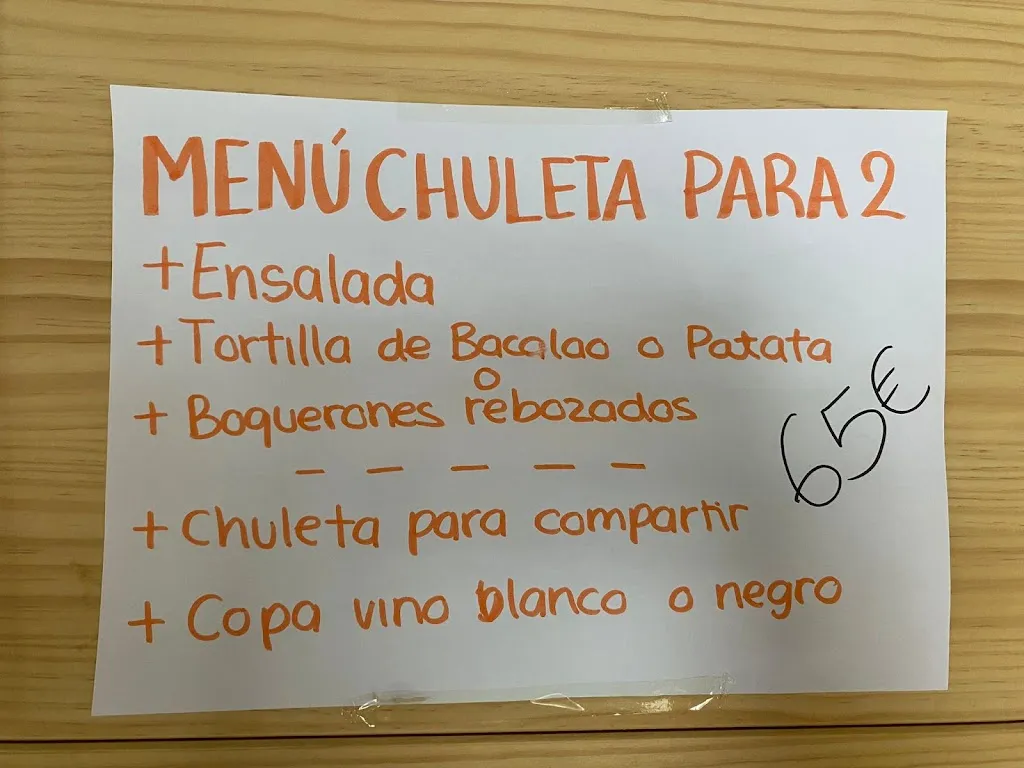 MENÚ CHULETA PARA 2
+ Ensalada
+ Tortilla de Bacalao o Patata
o
+ Boquerones rebozados
65€
- - - - -
+ Chuleta para compartir
+ Copa vino blanco o negro